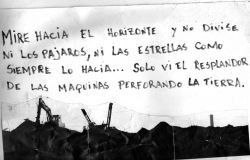 MIRE HACIA EL HORIZONTE Y NO DIVISE
NI LOS PAJAROS, NI LAS ESTRELLAS COMO
SIEMPRE LO HACIA... SOLO VI EL RESPLANDOR
DE LAS MAQUINAS PERFORANDO LA TIERRA.